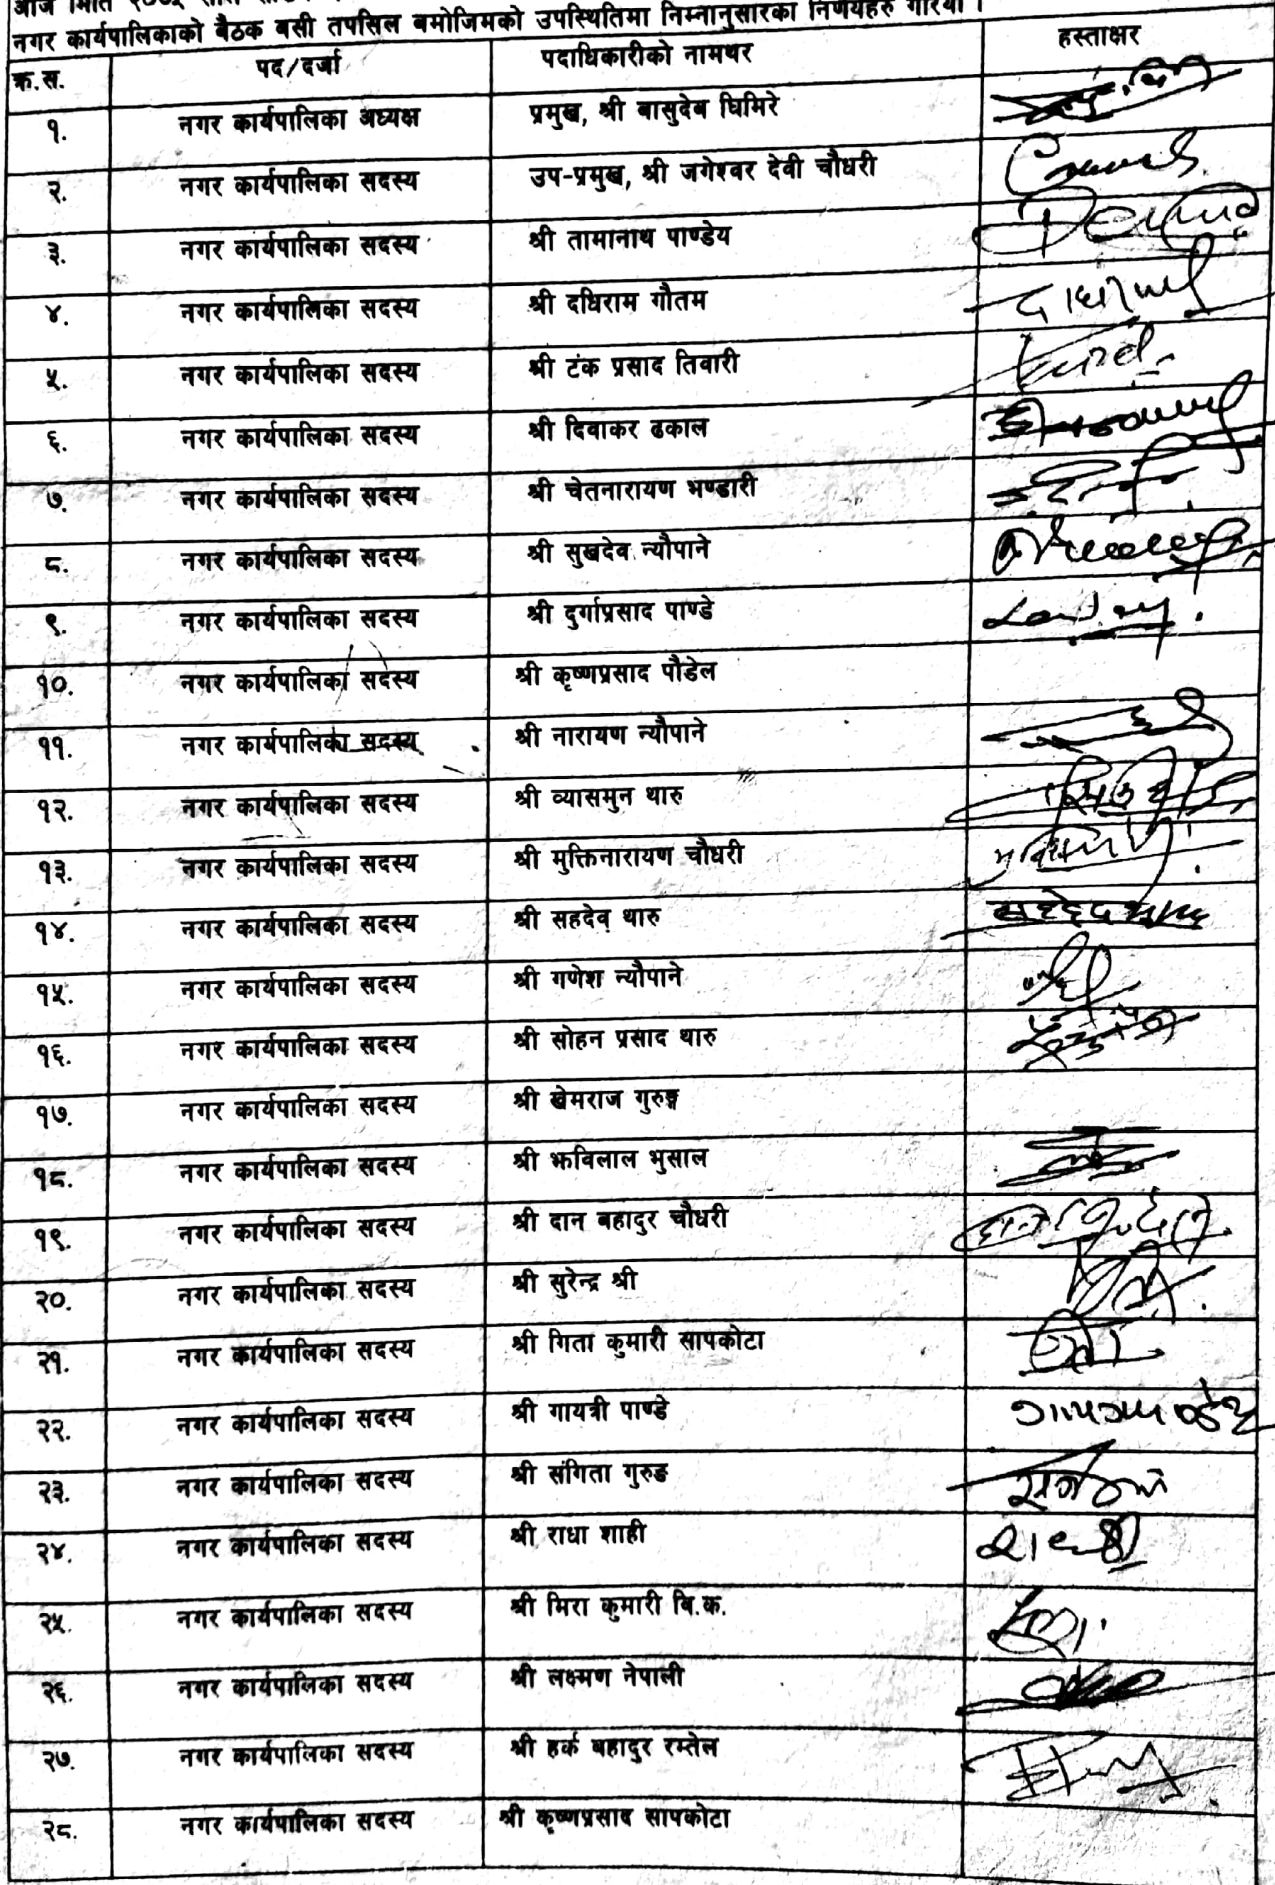 आज मिति २०७५
नगर कार्यपालिकाको बैठक बसी तपसिल बमोजिमको उपस्थितिमा निम्नानुसारका निर्णयहरु गरियो ।
क्र.स. पद/दर्जा पदाधिकारीको नामथर हस्ताक्षर
१. नगर कार्यपालिका अध्यक्ष प्रमुख, श्री बासुदेव घिमिरे
२. नगर कार्यपालिका सदस्य उप-प्रमुख, श्री जगेश्वर देवी चौधरी
३. नगर कार्यपालिका सदस्य श्री तामानाथ पाण्डेय
४. नगर कार्यपालिका सदस्य श्री दधिराम गौतम
५. नगर कार्यपालिका सदस्य श्री टंक प्रसाद तिवारी
६. नगर कार्यपालिका सदस्य श्री दिवाकर ढकाल
७. नगर कार्यपालिका सदस्य श्री चेतनारायण भण्डारी
८. नगर कार्यपालिका सदस्य श्री सुखदेव न्यौपाने
९. नगर कार्यपालिका सदस्य श्री दुर्गाप्रसाद पाण्डे
१०. नगर कार्यपालिका सदस्य श्री कृष्णप्रसाद पौडेल
११. नगर कार्यपालिका सदस्य श्री नारायण न्यौपाने
१२. नगर कार्यपालिका सदस्य श्री व्यासमुन थारु
१३. नगर कार्यपालिका सदस्य श्री मुक्तिनारायण चौधरी
१४. नगर कार्यपालिका सदस्य श्री सहदेव थारु
१५. नगर कार्यपालिका सदस्य श्री गणेश न्यौपाने
१६. नगर कार्यपालिका सदस्य श्री सोहन प्रसाद थारु
१७. नगर कार्यपालिका सदस्य श्री खेमराज गुरुङ्ग
१८. नगर कार्यपालिका सदस्य श्री झविलाल भुसाल
१९. नगर कार्यपालिका सदस्य श्री दान बहादुर चौधरी
२०. नगर कार्यपालिका सदस्य श्री सुरेन्द्र श्री
२१. नगर कार्यपालिका सदस्य श्री गिता कुमारी सापकोटा
२२. नगर कार्यपालिका सदस्य श्री गायत्री पाण्डे
२३. नगर कार्यपालिका सदस्य श्री संगिता गुरुङ
२४. नगर कार्यपालिका सदस्य श्री राधा शाही
२५. नगर कार्यपालिका सदस्य श्री मिरा कुमारी बि.क.
२६. नगर कार्यपालिका सदस्य श्री लक्ष्मण नेपाली
२७. नगर कार्यपालिका सदस्य श्री हर्क बहादुर रम्तेल
२८. नगर कार्यपालिका सदस्य श्री कृष्णप्रसाद सापकोटा